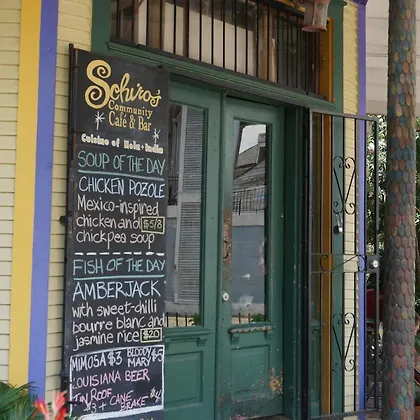 Sohiro's
Community
Café & Bar
Cuisine of Nola + India
SOUP OF THE DAY
CHICKEN POZOLE
Mexico-inspired
chicken and $5/8
chickpea soup
FISH OF THE DAY
AMBERJACK
with sweet-chilli
bourre blanc and
jasmine rice $20
MIMOSA $3 BLOODY MARY $5
LOUISIANA BEER
TIN ROOF
$3 + CANE BRAKE $4